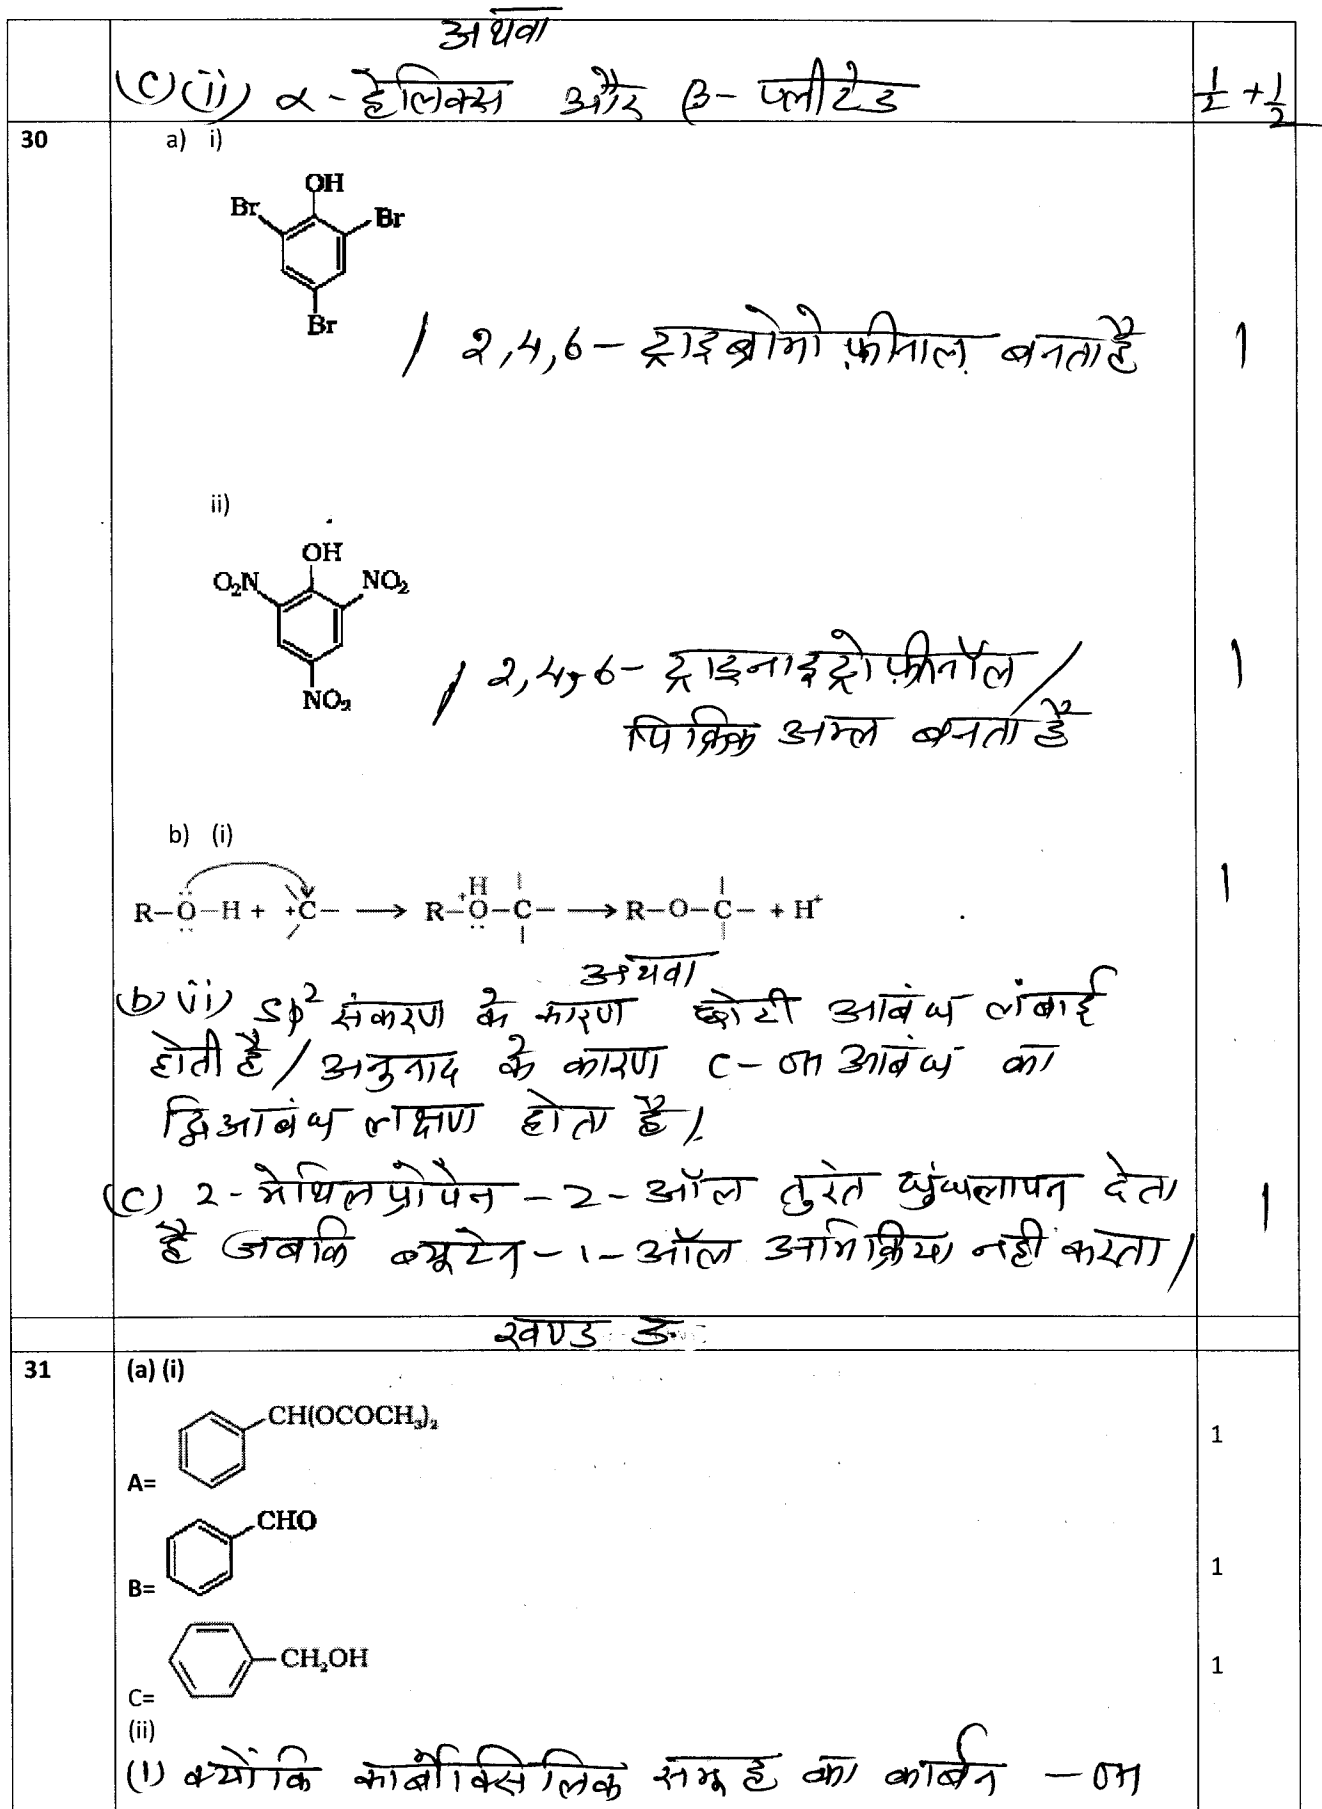 अथवा
(C) (ii) α - हेलिक्स और β - प्लीटेड 1/2 + 1/2
30 a) i)
OH
Br Br
Br
/ 2,4,6 - ट्राइब्रोमो फ़ीनाल बनता है 1
ii)
OH
O₂N NO₂
NO₂
/ 2,4,6 - ट्राइनाइट्रो फ़ीनॉल / 1
पिक्रिक अम्ल बनता है
b) (i)
1
R–Ö–H + +C– ⟶ R–⁺Ö(H)–C– ⟶ R–O–C– + H⁺
अथवा
(b) (ii) sp² संकरण के कारण छोटी आबंध लंबाई
होती है / अनुनाद के कारण C - OH आबंध का
द्विआबंध लक्षण होता है /
(C) 2 - मेथिल प्रोपेन - 2 - ऑल तुरंत धुंधलापन देता 1
है जबकि ब्यूटेन - 1 - ऑल अभिक्रिया नहीं करता /
खण्ड ङ
31 (a) (i)
CH(OCOCH₃)₂
A= 1
CHO
B= 1
CH₂OH
C= 1
(ii)
(1) क्योंकि कार्बोक्सिलिक समूह का कार्बन - OH